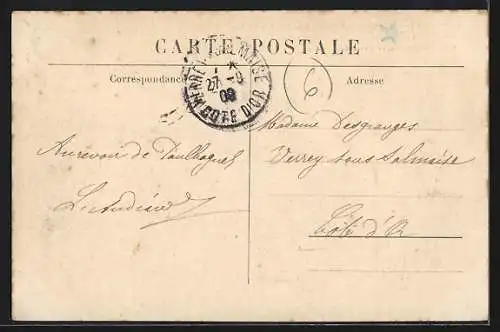 CARTE POSTALE
Correspondance
Adresse
VERREY-S-SALMAISE
27 -9
09
COTE D'OR
6
Madame Desgranges
Verrey sous Salmaise
Côte d'Or
Au revoir de Paulhaguet